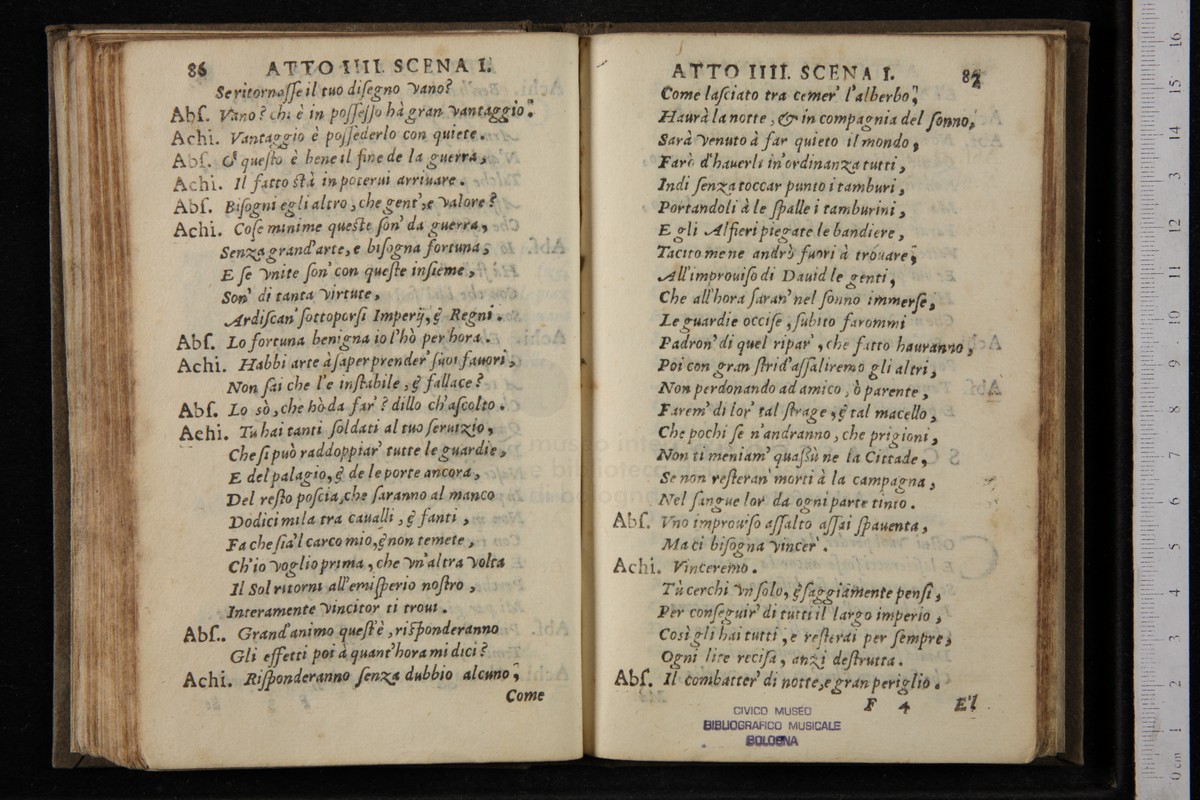 86 ATTO IIII. SCENA I.
Se ritornaſſe il tuo diſegno vano?
Abſ. Vano? chi è in poſſeſſo hà gran vantaggio.
Achi. Vantaggio è poſſederlo con quiete.
Abſ. O queſto è bene il fine de la guerra,
Achi. Il fatto ſtà in poterui arriuare.
Abſ. Biſogni egli altro, che gent', e valore?
Achi. Coſe minime queſte ſon' da guerra,
Senza grand'arte, e biſogna fortuna;
E ſe vnite ſon' con queſte inſieme,
Son' di tanta virtute,
Ardiſcan' ſottoporſi Imperij, & Regni.
Abſ. Lo fortuna benigna io l'hò per hora.
Achi. Habbi arte à ſaper prender' ſuoi fauori,
Non ſai che l'e inſtabile, & fallace?
Abſ. Lo sò, che hò da far'? dillo ch'aſcolto.
Achi. Tu hai tanti ſoldati al tuo ſeruizio,
Che ſi può raddoppiar' tutte le guardie,
E del palagio, & de le porte ancora,
Del reſto poſcia, che ſaranno al manco
Dodici mila tra caualli, & fanti,
Fa che ſia'l carco mio, & non temete,
Ch'io voglio prima, che vn'altra volta
Il Sol ritorni all'emiſperio noſtro,
Interamente vincitor ti troui.
Abſ. Grand'animo queſt'è, riſponderanno
Gli effetti poi à quant'hora mi dici?
Achi. Riſponderanno ſenza dubbio alcuno,
Come
ATTO IIII. SCENA I. 87
Come laſciato tra cemer' l'alberbo,
Haurà la notte, & in compagnia del ſonno,
Sarà venuto à far quieto il mondo,
Farò d'hauerli in'ordinanza tutti,
Indi ſenza toccar punto i tamburi,
Portandoli à le ſpalle i tamburini,
E gli Alfieri piegate le bandiere,
Tacito me ne andrò fuori à trouare,
All'improuiſo di Dauid le genti,
Che all'hora ſaran' nel ſonno immerſe,
Le guardie occiſe, ſubito farommi
Padron' di quel ripar', che fatto hauranno,
Poi con gran ſtrid'aſſaliremo gli altri,
Non perdonando ad amico, ò parente,
Farem' di lor' tal ſtrage, & tal macello,
Che pochi ſe n'andranno, che prigioni,
Non ti meniam' quaſsù ne la Cittade,
Se non reſteran morti à la campagna,
Nel ſangue lor da ogni parte tinto.
Abſ. Vno improuiſo aſſalto aſſai ſpauenta,
Ma ci biſogna vincer'.
Achi. Vinceremo.
Tù cerchi vn ſolo, & ſaggiamente penſi,
Per conſeguir' di tutti il largo imperio,
Così gli hai tutti, e reſterai per ſempre,
Ogni lite reciſa, anzi deſtrutta.
Abſ. Il combatter' di notte, e gran periglio.
F 4 E'l
CIVICO MUSEO
BIBLIOGRAFICO MUSICALE
BOLOGNA